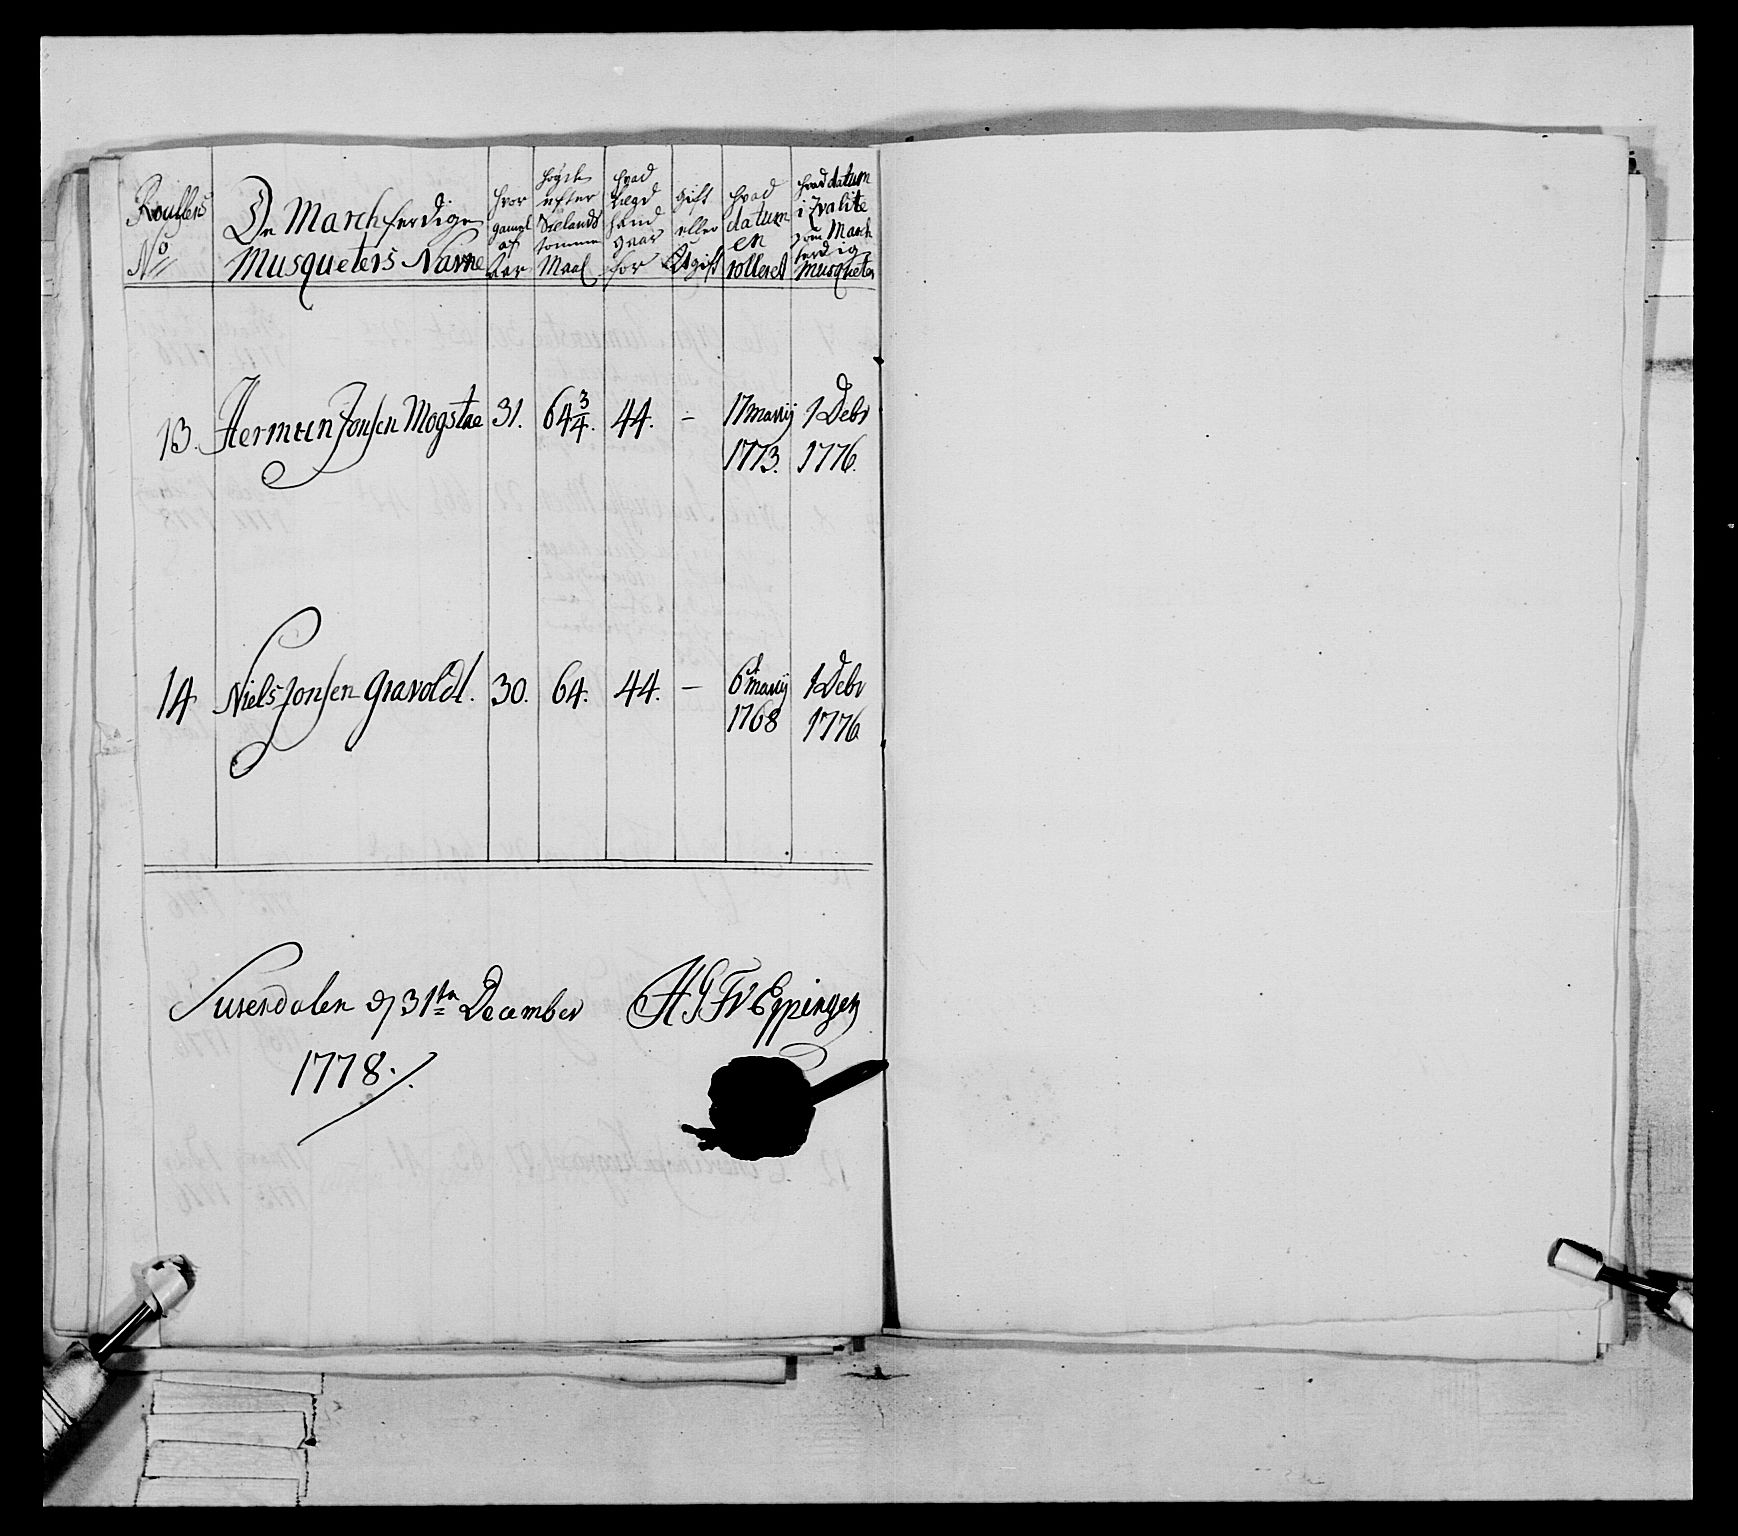 Roullens No
De March ferdige Musqueters Navne
hvor gamel af Aar
høyde efter Siellands tomme Maal
hvad Lægd hand svar for
gift eller Ugift
hvad datum en rolleret
hvad datum i Qvalite som March ferdig Musqueter
13. Hermen Jonsen Mogstae 31. 64 3/4. 44. – 17 Martij 1773. 1 Debr 1776.
14 Niels Jonsen Gravoldt. 30. 64. 44. – 6t Martij 1768 1 Debr 1776
Surendalen d 31ten December
1778.
HGFV Eppingen